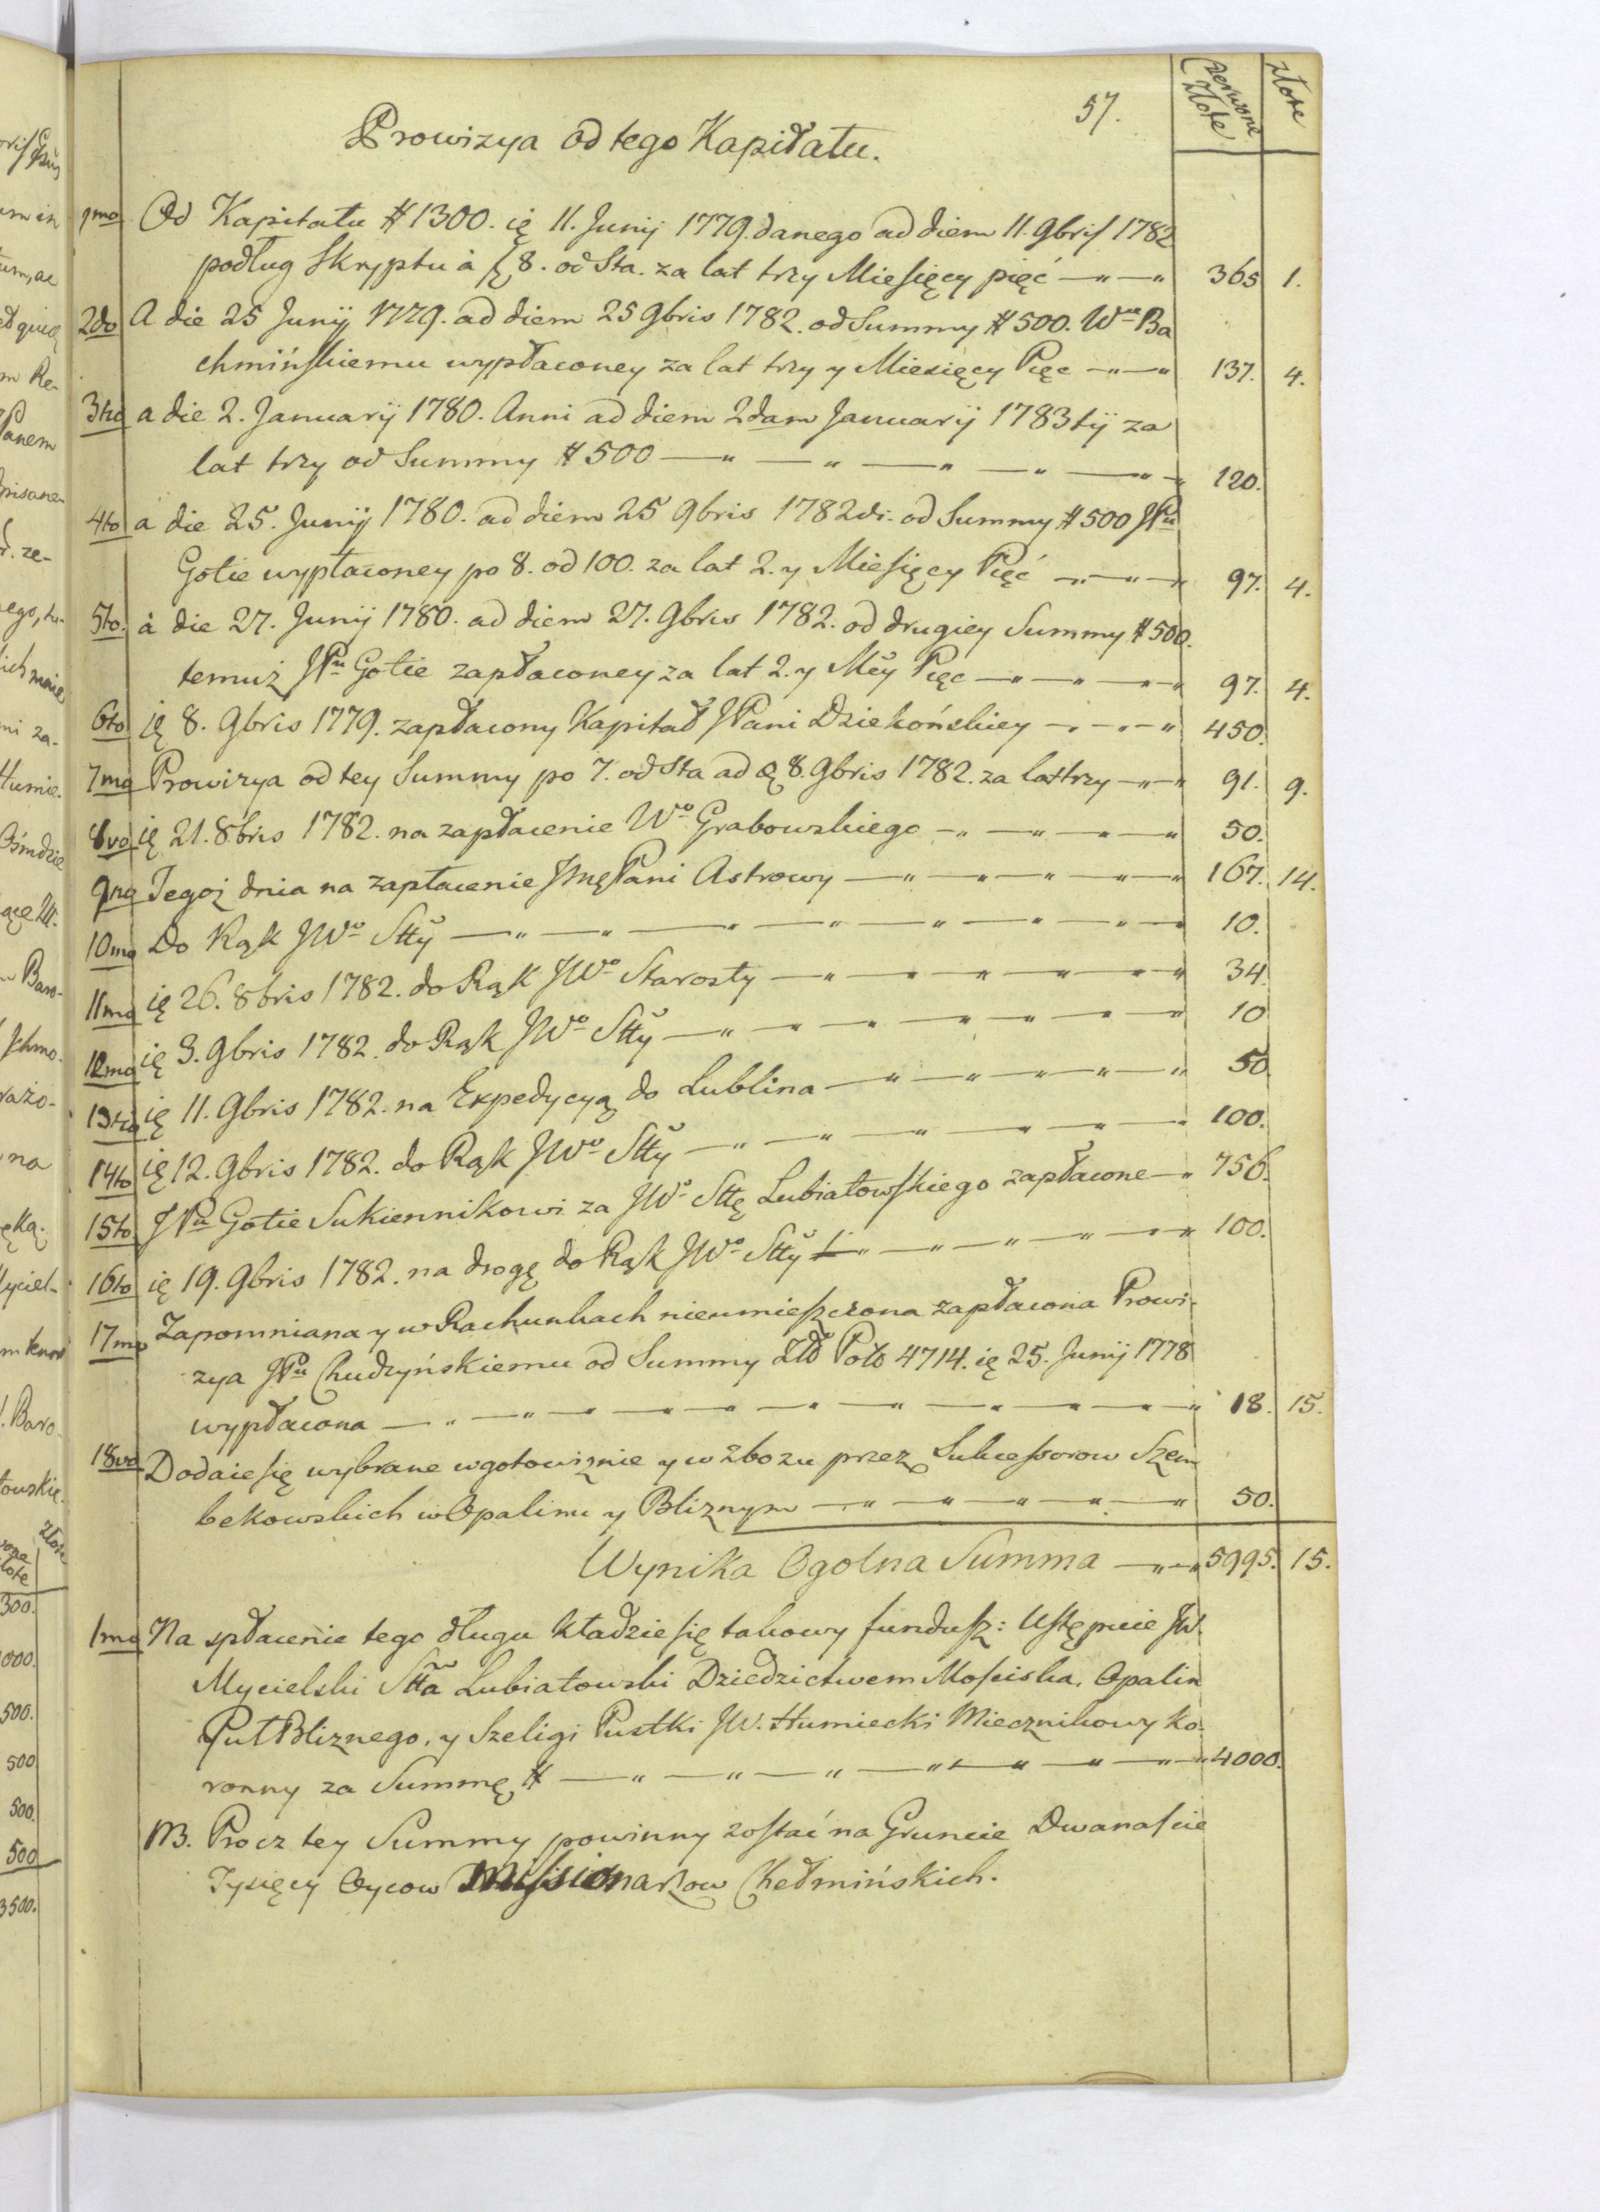 57.
czerwone złote
złote
Prowizya od tego Kapitału.
1mo Od Kapitału # 1300. ię 11. Junij 1779. danego ad diem 11. 9bris 1782
podług Skryptu à 8. od Sta. za lat trzy Miesięcy pięć — 365 1.
2do A die 25 Junij 1779. ad diem 25 9bris 1782. od Summy # 500. Wu Ba
chmińskiemu wypłaconey za lat trzy y Miesięcy Pięc — 137. 4.
3tio a die 2. Januarij 1780. Anni ad diem 2dam Januarij 1783tij za
lat trzy od Summy # 500 — 120.
4to a die 25. Junij 1780. ad diem 25 9bris 1782di. od Summy # 500 JPu
Gotie wypłaconey po 8. od 100. za lat 2. y Miesięcy Pięć — 97. 4.
5to. à die 27. Junij 1780. ad diem 27. 9bris 1782. od drugiey Summy # 500.
temuż JPu Gotie zapłaconey za lat 2. y Mcy Pięc — 97. 4.
6to ię 8. 9bris 1779. zapłacony Kapitał JPani Dziekońskiey — 450.
7mo Prowizya od tey Summy po 7. od Sta ad 8. 9bris 1782. za lat trzy — 91. 9.
8vo ię 21. 8bris 1782. na zapłacenie Wo Grabowskiego — 50.
9no Tegoż dnia na zapłacenie JmęPani Astrowy — 167. 14.
10mo Do Rąk JWo Stty — 10.
11mo ię 26. 8bris 1782. do Rąk JWo Starosty — 34.
12mo ię 3. 9bris 1782. do Rąk JWo Stty — 10
13tio ię 11. 9bris 1782. na Expedycyą do Lublina — 50
14to ię 12. 9bris 1782. do Rąk JWo Stty — 100.
15to JPu Gotie Sukiennikowi za JWo Sttę Lubiatowskiego zapłacone — 756.
16to ię 19. 9bris 1782. na drogę do Rąk JWo Stty — 100.
17mo Zapomniana y w Rachunkach nieumieszczona zapłacona Prowi-
zya JPu Chudzyńskiemu od Summy Złł Pols 4714. ię 25. Junij 1778
wypłacona — 18. 15.
18vo Dodaie się wybrane w gotowiznie y w zbozu przez Sukcessorow Szem
bekowskich w Opalinu y Bliznym — 50.
Wynika Ogolna Summa — 5995. 15.
1mo Na spłacenie tego długu kładzie się takowy fundusz: Ustępuie JW.
Mycielski Stta Lubiatowski Dziedzictwem Mosciska, Opalin
Puł Bliznego, y Szeligi Pustki JW. Humiecki Miecznikowy Ko-
ronny za Summę # — 4000.
NB. Procz tey Summy powinny zostać na Gruncie Dwanascie
Tysięcy Oycow Missionarzow Chełmińskich.